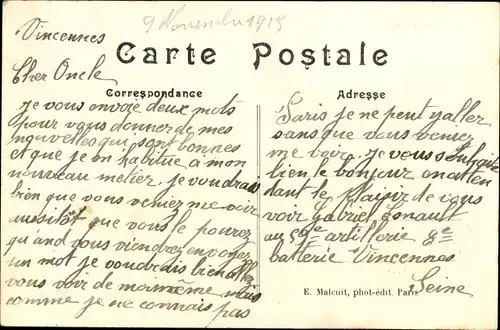 9 Novembre 1915
Vincennes
Carte Postale
Cher Oncle
Correspondance
je vous envoie deux mots
pour vous donner de mes
nouvelles qui sont bonnes
et que je m habitue a mon
nouveau métier. je voudrais
bien que vous veniez me voir
aussitôt que vous le pourez
quand vous viendrez envoyez
un mot je voudrais bien aller
vous voir de mormême mais
comme je ne connais pas
Adresse
Paris je ne peut y aller
sans que vous veniez
me voir. je vous souhaite
bien le bonjour en atten
dant le plaisir de vous
voir Gabriel
au 59e artillerie 9e
baterie Vincennes
Seine
E. Malcuit, phot-édit. Paris